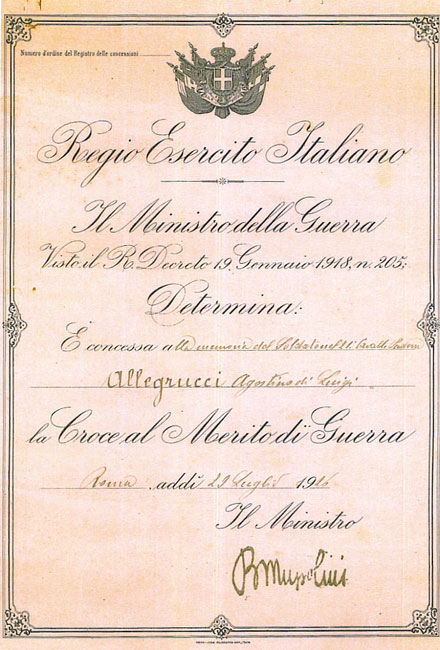 Numero d'ordine del Registro delle concessioni
Regio Esercito Italiano
Il Ministro della Guerra
Visto il R. Decreto 19 Gennaio 1918, n. 205;
Determina:
È concessa alla memoria del Soldato
Allegrucci Agostino di Luigi
la Croce al Merito di Guerra
Roma addì 29 Luglio 1926
Il Ministro
B Mussolini